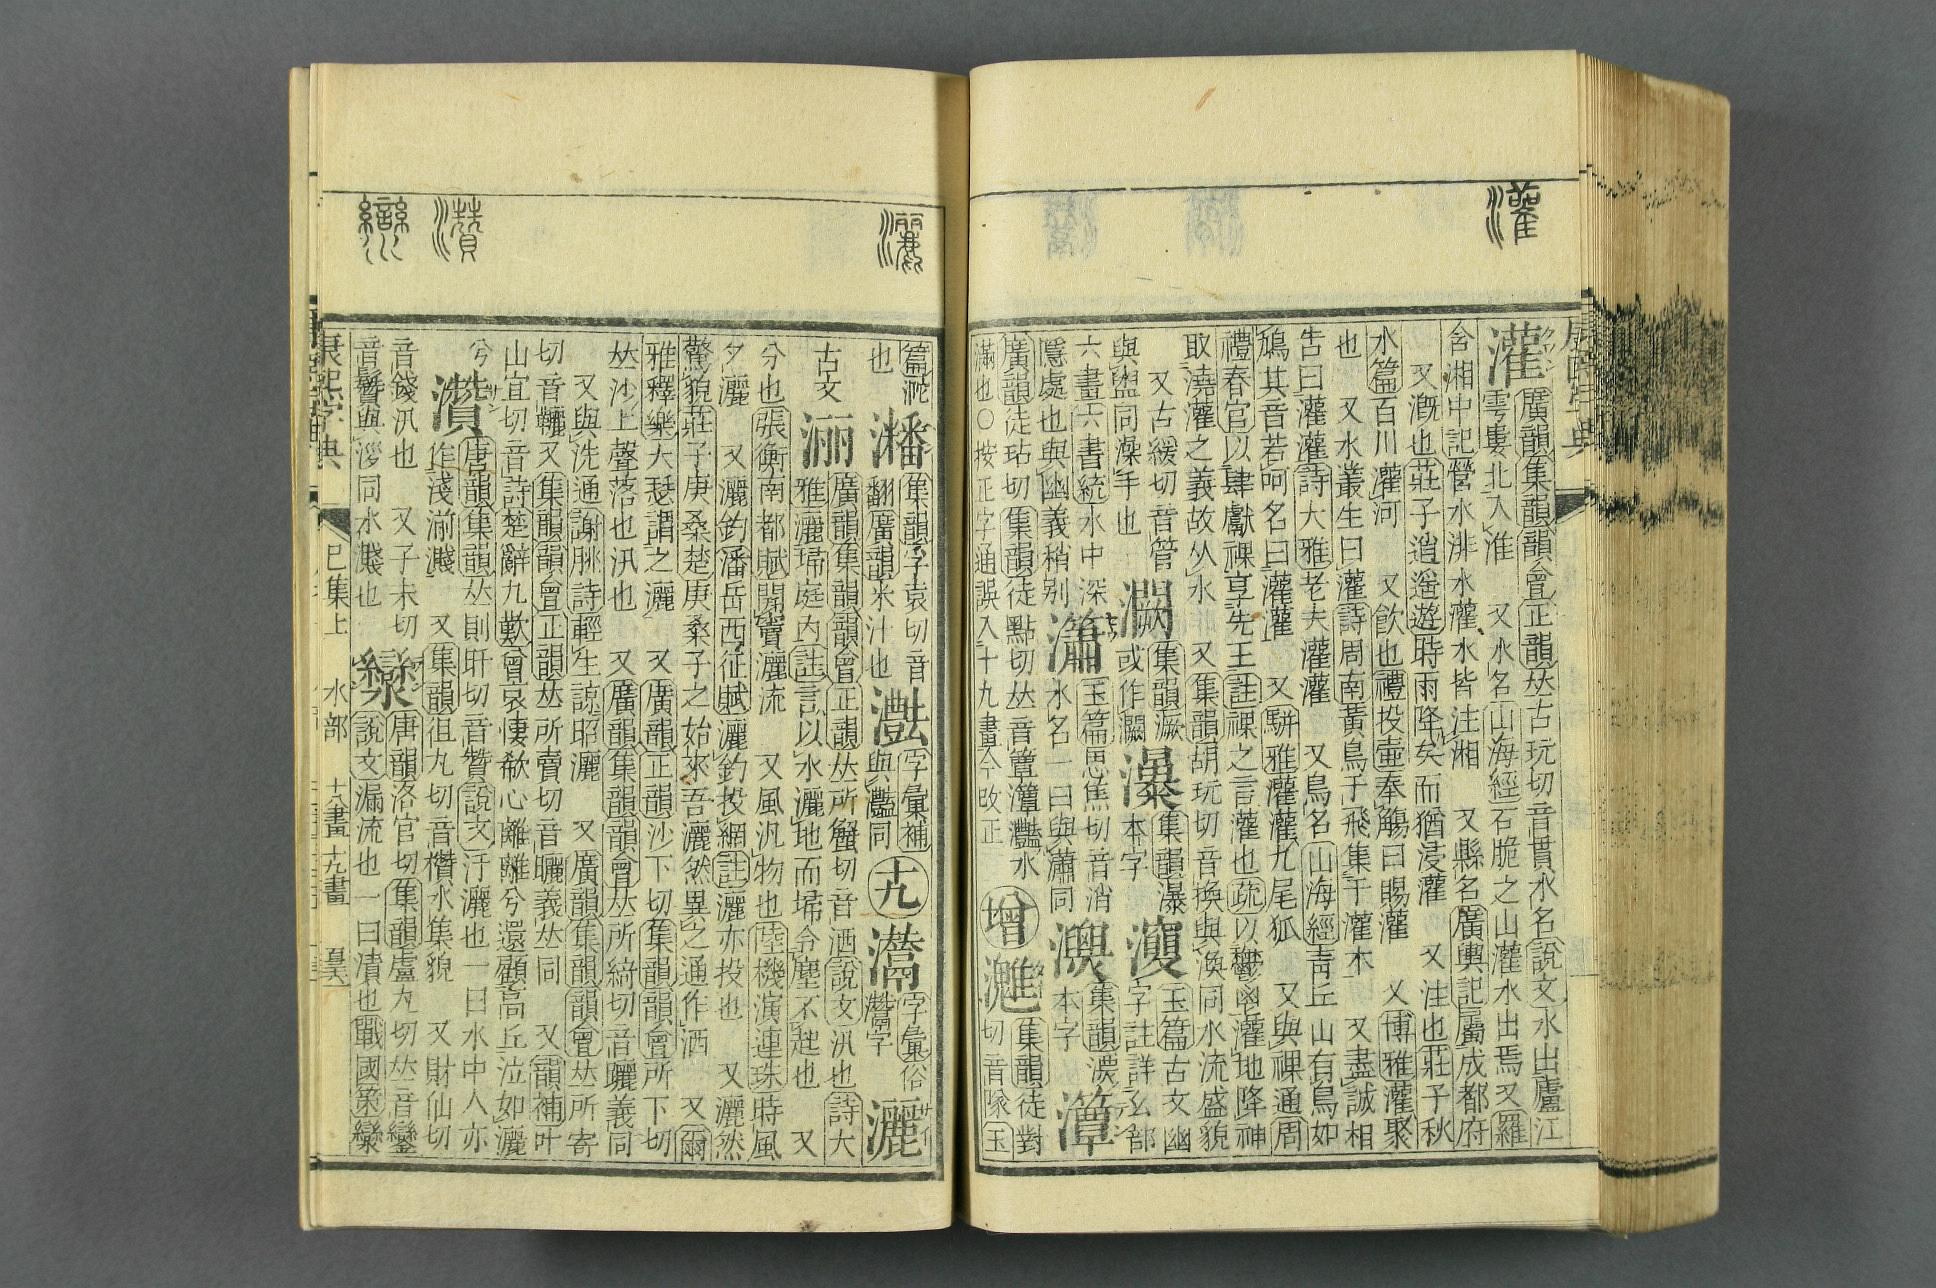 灌
康熙字典
灌 廣韻集韻韻會正韻𠀤古玩切音貫水名說文水出廬江
雩婁北入淮 又水名山海經石脆之山灌水出焉又羅
含湘中記營水洮水灌水皆注湘 又縣名廣輿記屬成都府
又漑也莊子逍遙遊時雨降矣而猶浸灌 又注也莊子秋
水篇百川灌河 又飮也禮投壷奉觴曰賜灌 又博雅灌聚
也 又木叢生曰灌詩周南黃鳥于飛集于灌木 又盡誠相
吿曰灌灌詩大雅老夫灌灌 又鳥名山海經靑丘山有鳥如
鳩其音若呵名曰灌灌 又駢雅灌灌九尾狐 又與祼通周
禮春官以肆獻祼享先王註祼之言灌也疏以鬱鬯灌地降神
取澆灌之義故从水 又集韻胡玩切音換與渙同水流盛貌
又古緩切音管 集韻 集韻瀑 玉篇古文幽
與盥同澡手也 或作 本字 字註詳幺部
六畫六書統水中深 瀟 玉篇思焦切音消 集韻濃
隱處也與幽義稍别 水名一曰與潚同 本字
廣韻徒玷切集韻徒點切𠀤音簟 水 增 集韻徒對
滿也○按正字通誤入十九畫今改正 切音隊玉
灑
瀵
篇沱 瀿 集韻孚袁切音 灔 字彙補 十九 字彙俗 灑
也 翻廣韻米汁也 與灩同 字
古文 洒 廣韻集韻韻會正韻𠀤所蟹切音洒說文汛也詩大
雅灑埽庭內註言以水灑地而埽令塵不起也 又
分也張衡南都賦開竇灑流 又風汎物也陸機演連珠時風
夕灑 又灑釣潘岳西征賦灑釣投網註灑亦投也 又灑然
驚貌莊子庚桑楚庚桑子之始來吾灑然異之通作洒 又爾
雅釋樂大瑟謂之灑 又廣韻正韻沙下切集韻韻會所下切
𠀤沙上聲落也汛也 又廣韻集韻韻會𠀤所綺切音曬義同
又與洗通謝脁詩輕生諒昭灑 又廣韻集韻韻會𠀤所寄
切音韆又集韻韻會正韻𠀤所賣切音曬義𠀤同 又韻補叶
山宜切音詩楚辭九歎曾哀悽欷心離離兮還顧高丘泣如灑
兮 灒 唐韻集韻𠀤則旰切音贊說文汙灑也一曰水中人亦
作淺湔濺 又集韻徂丸切音欑水集貌 又財仙切
音錢汛也 又子末切 灓 唐韻洛官切集韻盧丸切𠀤音鑾
音鬢與㳨同水濺也 說文漏流也一曰漬也戰國策灓
康熙字典 巳集上 水部 十八畫 十九畫